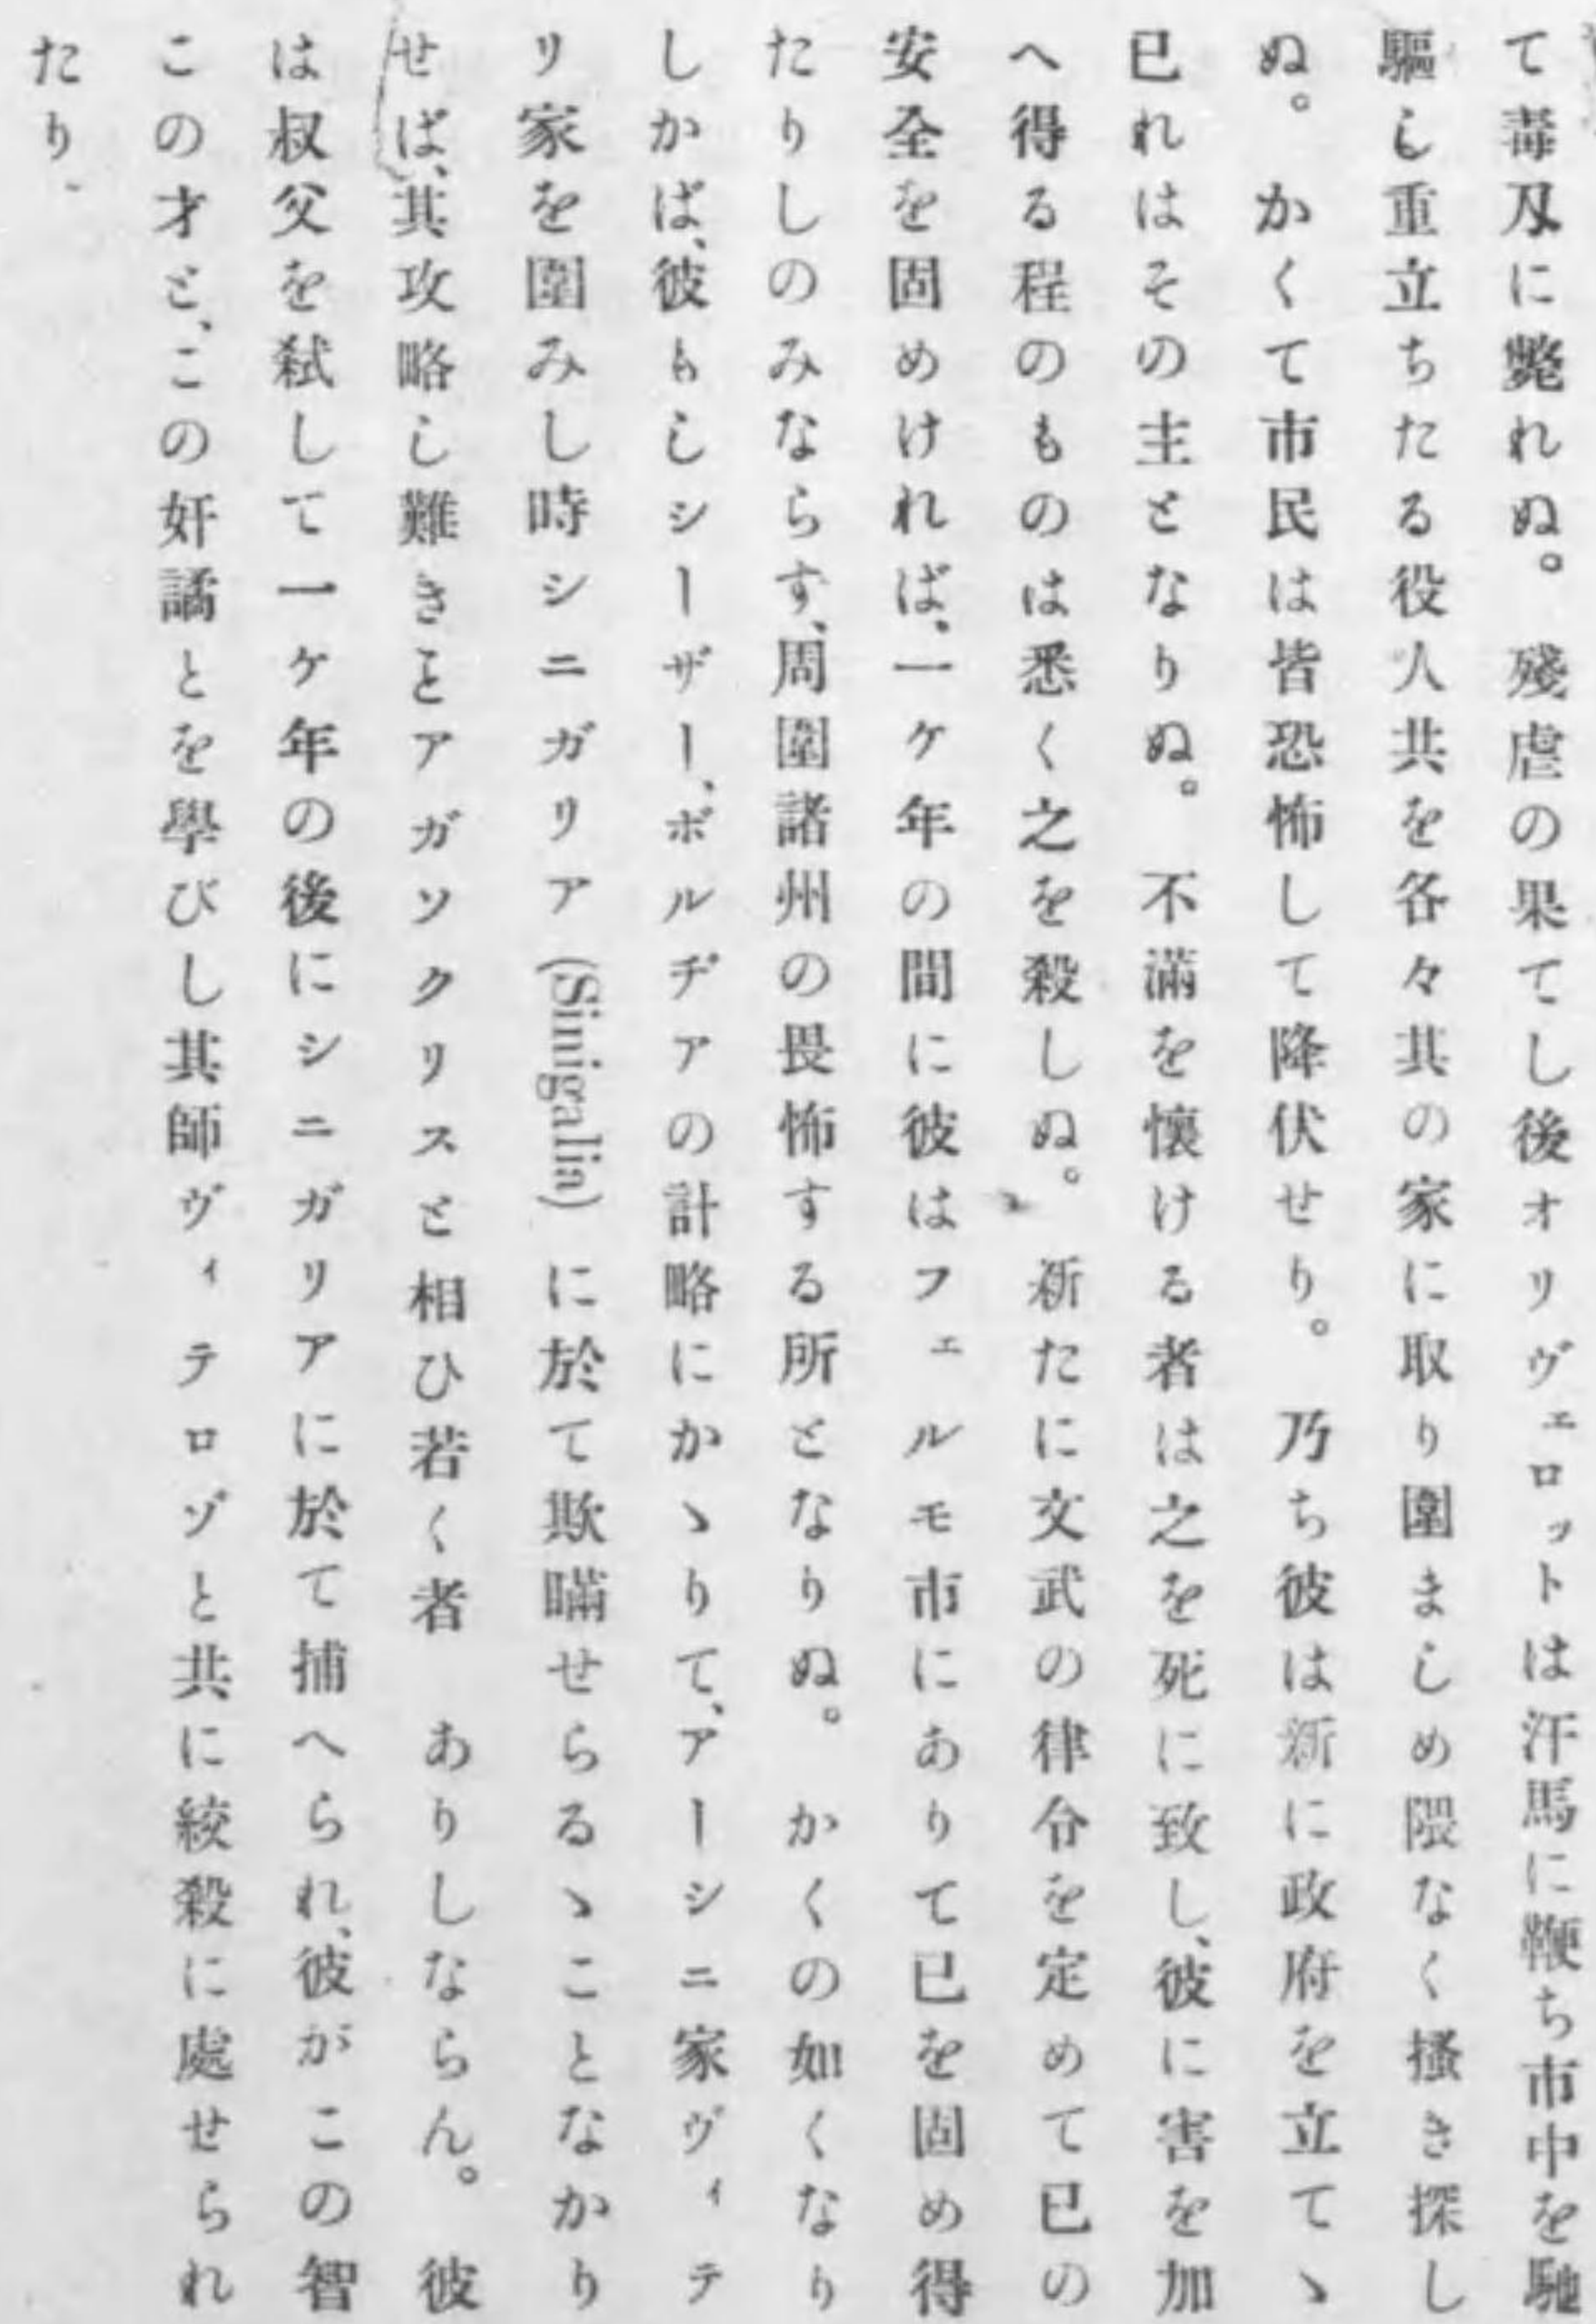 て毒刄に斃れぬ。殘虐の果てし後オリヴェロットは汗馬に鞭ち市中を馳
驅し重立ちたる役人共を各々其の家に取り圍ましめ隈なく搔き探し
ぬ。かくて市民は皆恐怖して降伏せり。乃ち彼は新に政府を立てゝ
已れはその主となりぬ。不滿を懷ける者は之を死に致し、彼に害を加
へ得る程のものは悉く之を殺しぬ。新たに文武の律令を定めて已の
安全を固めければ、一ケ年の間に彼はフェルモ市にありて已を固め得
たりしのみならす、周圍諸州の畏怖する所となりぬ。かくの如くなり
しかば、彼もしシーザー、ボルヂアの計略にかゝりて、アーシニ家ヴィテ
リ家を圍みし時シニガリア (Sinigalia) に於て欺瞞せらるゝことなかり
せば、其攻略し難きとアガソクリスと相ひ若く者 ありしならん。彼
は叔父を弑して一ケ年の後にシニガリアに於て捕へられ、彼がこの智
この才と、この奸譎とを學びし其師ヴィテロゾと共に絞殺に處せられ
たり.